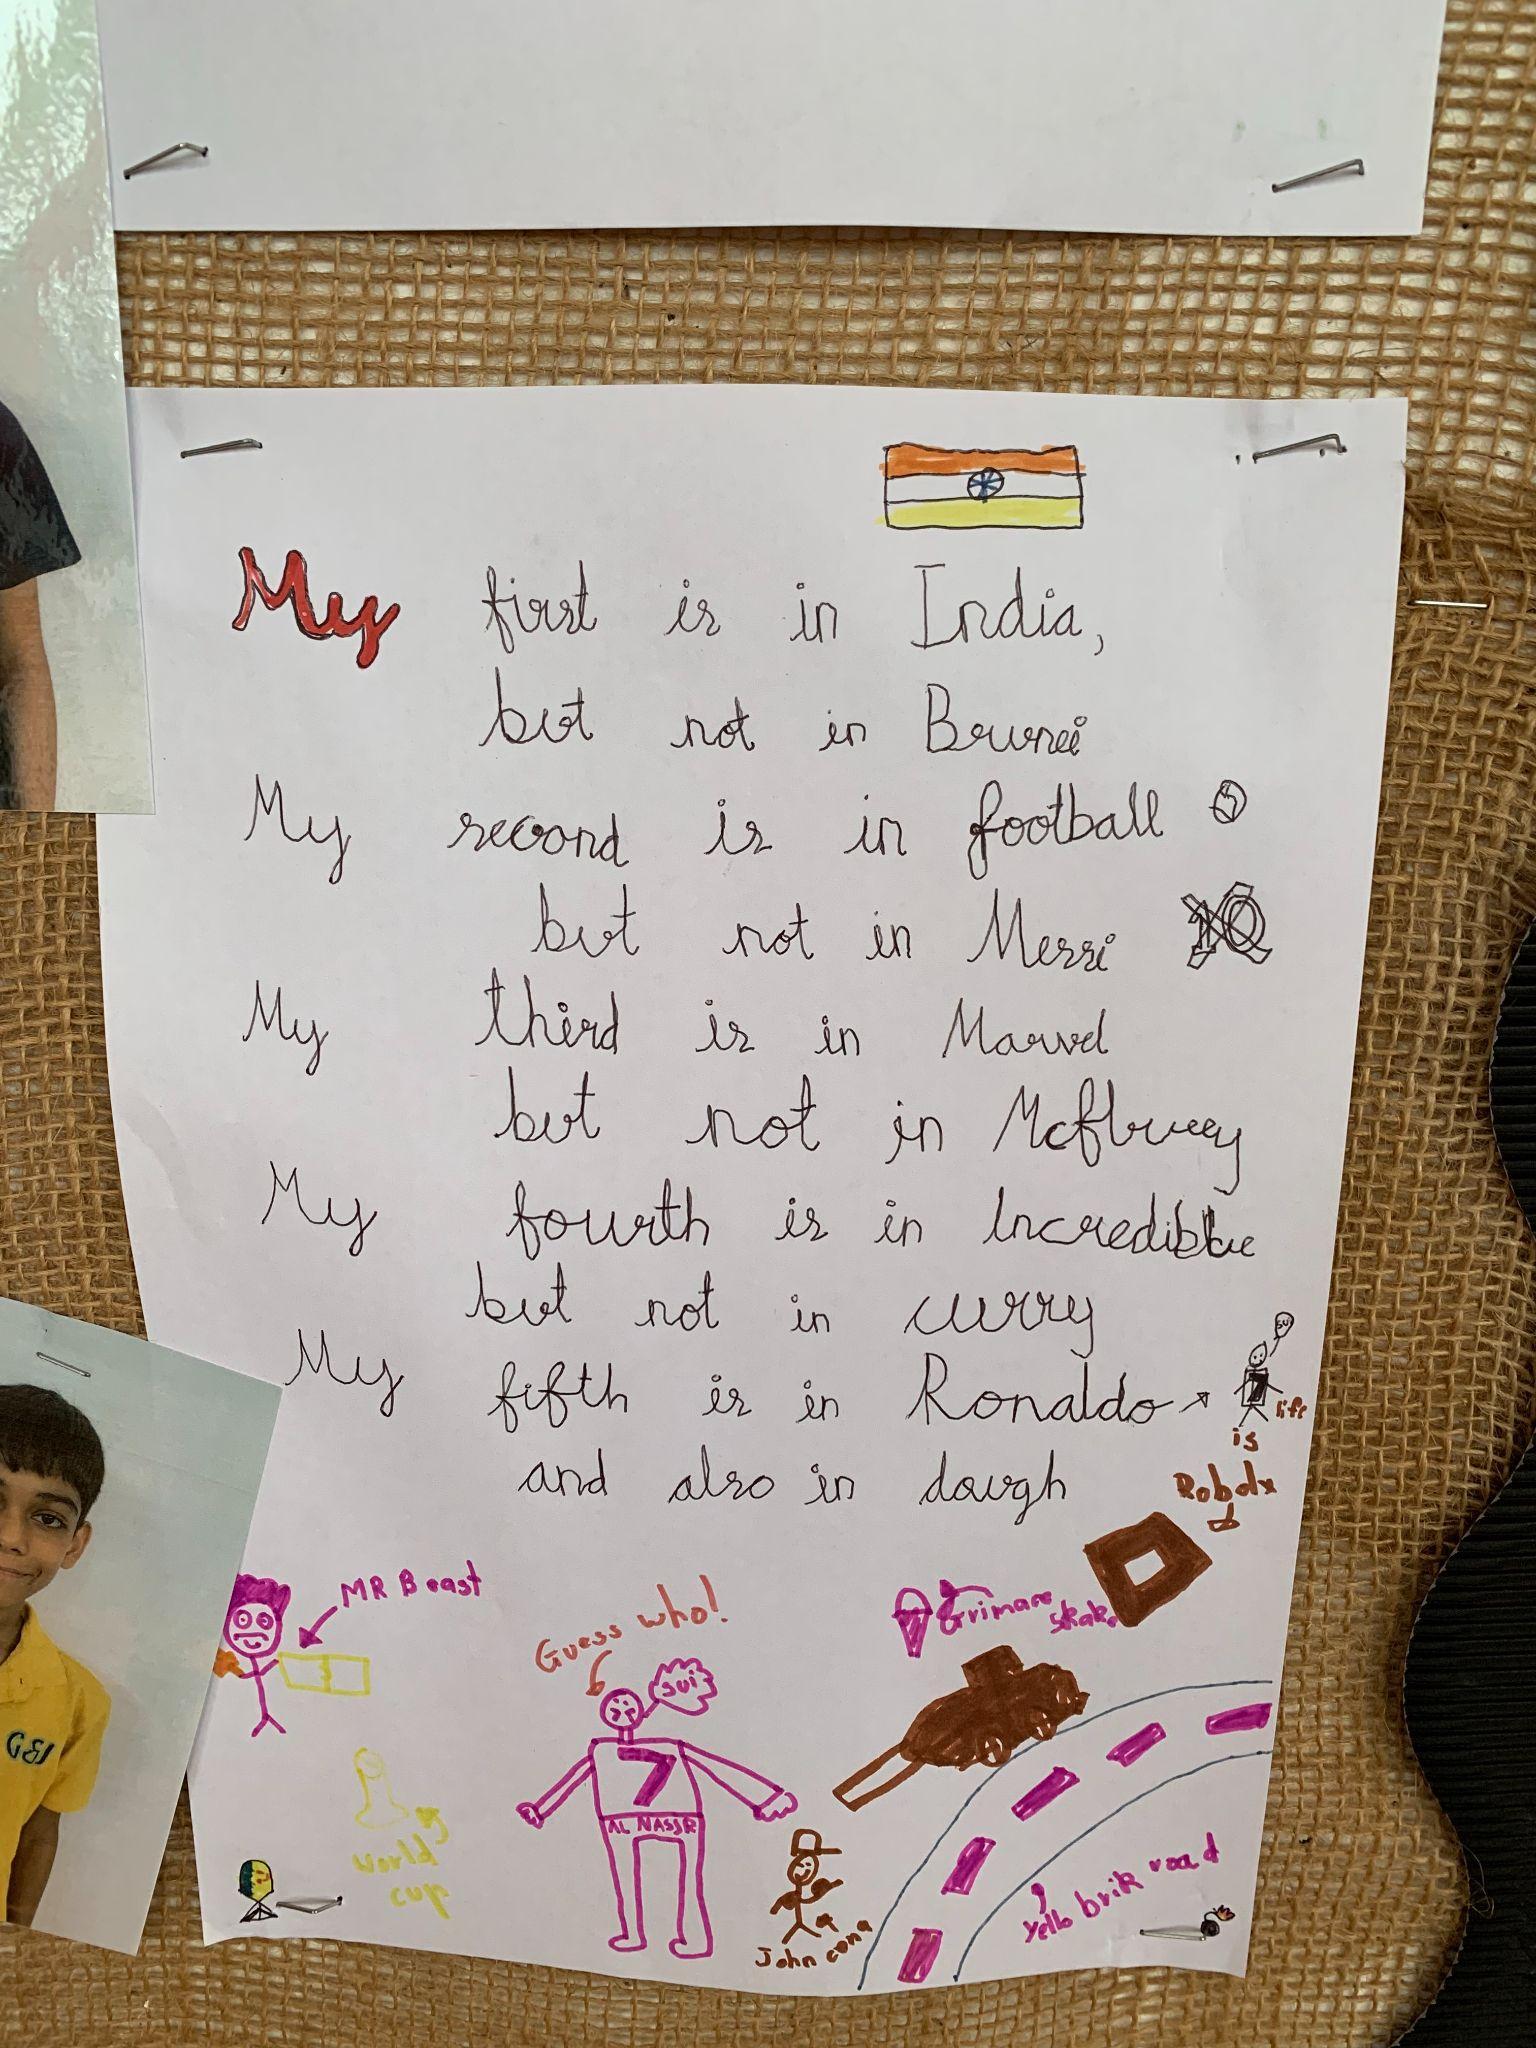 My first is in India,
but not in Brunei
My second is in football
but not in Messi
10
My third is in Marvel
but not in Mcflurey
My fourth is in Incredible
but not in curry
My fifth is in Ronaldo
and also in dough
SUI
7
life
is
RoboLx
MR Beast
Guess who!
Grimare
Shake
SUi
7
AL NASSR
World
cup
John cena
Yello brik road
G&I